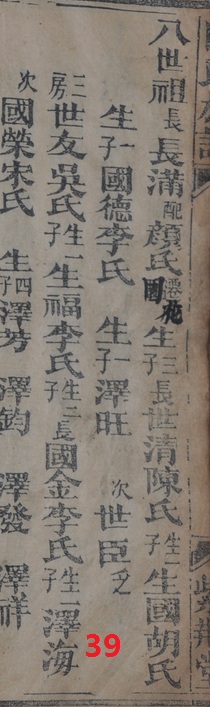 八世祖長長滿配顔氏遷苑國生三子長世清陳氏生一子生國胡氏
生一子國德李氏 生一子澤旺 次世臣乏
三房世友吳氏生一子生福李氏生二子長國金李氏生一子澤海
次國榮宋氏 生四子澤芳 澤鈞 澤發 澤祥
39